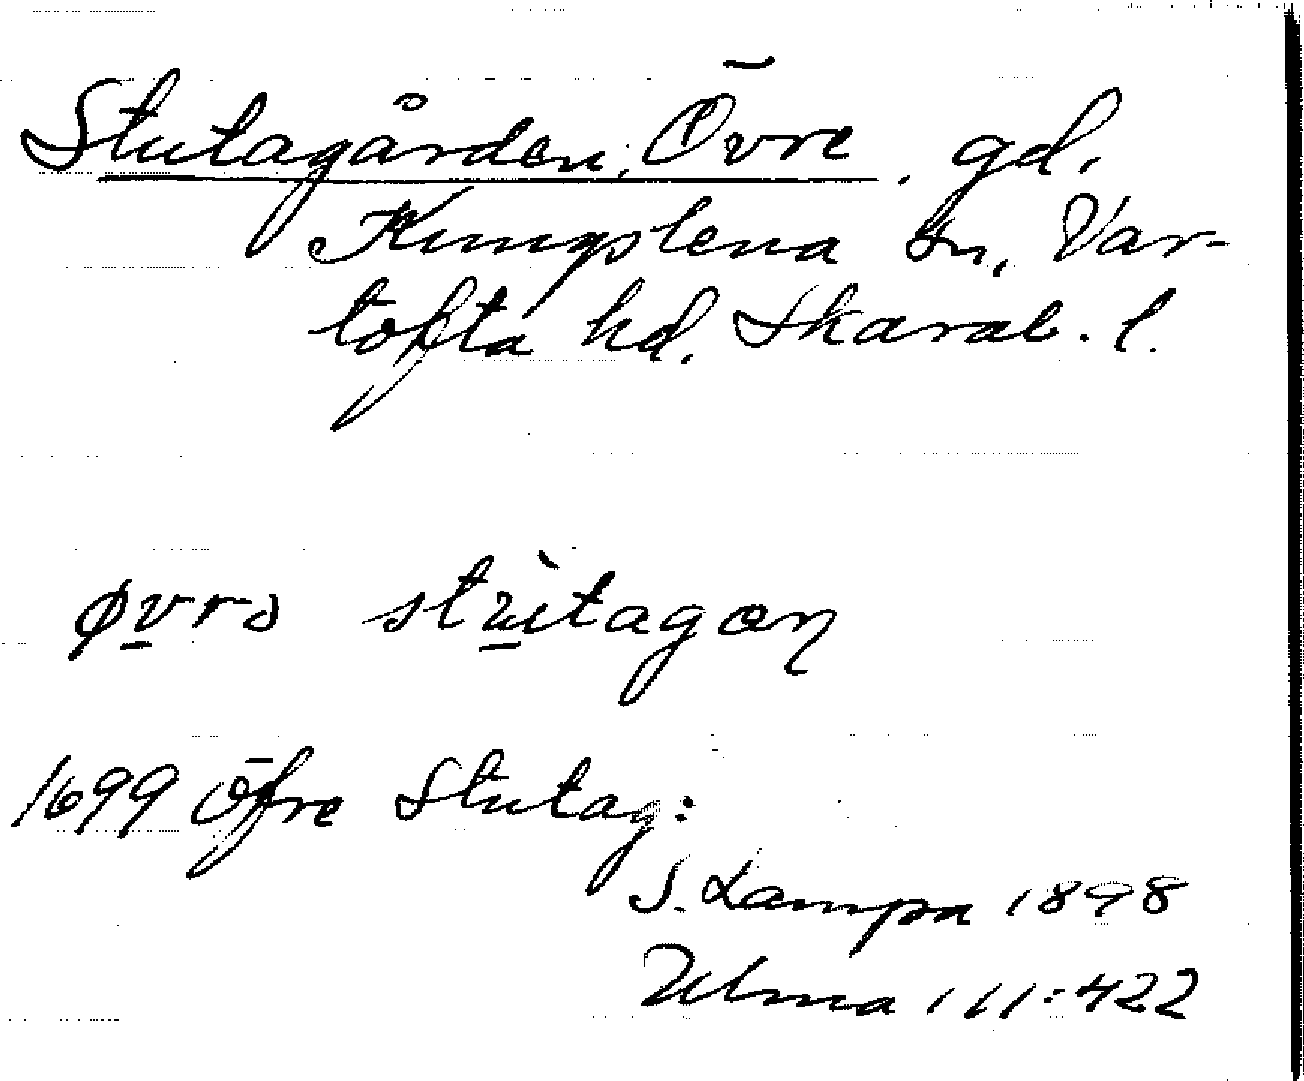 Stutagården, Övre. gd.
Kungslena sn, Var-
tofta hd. Skarab. l.
øvrə stùtagαn
1699 öfre Stutag:
S. Lampa 1898
Ulma 111:422